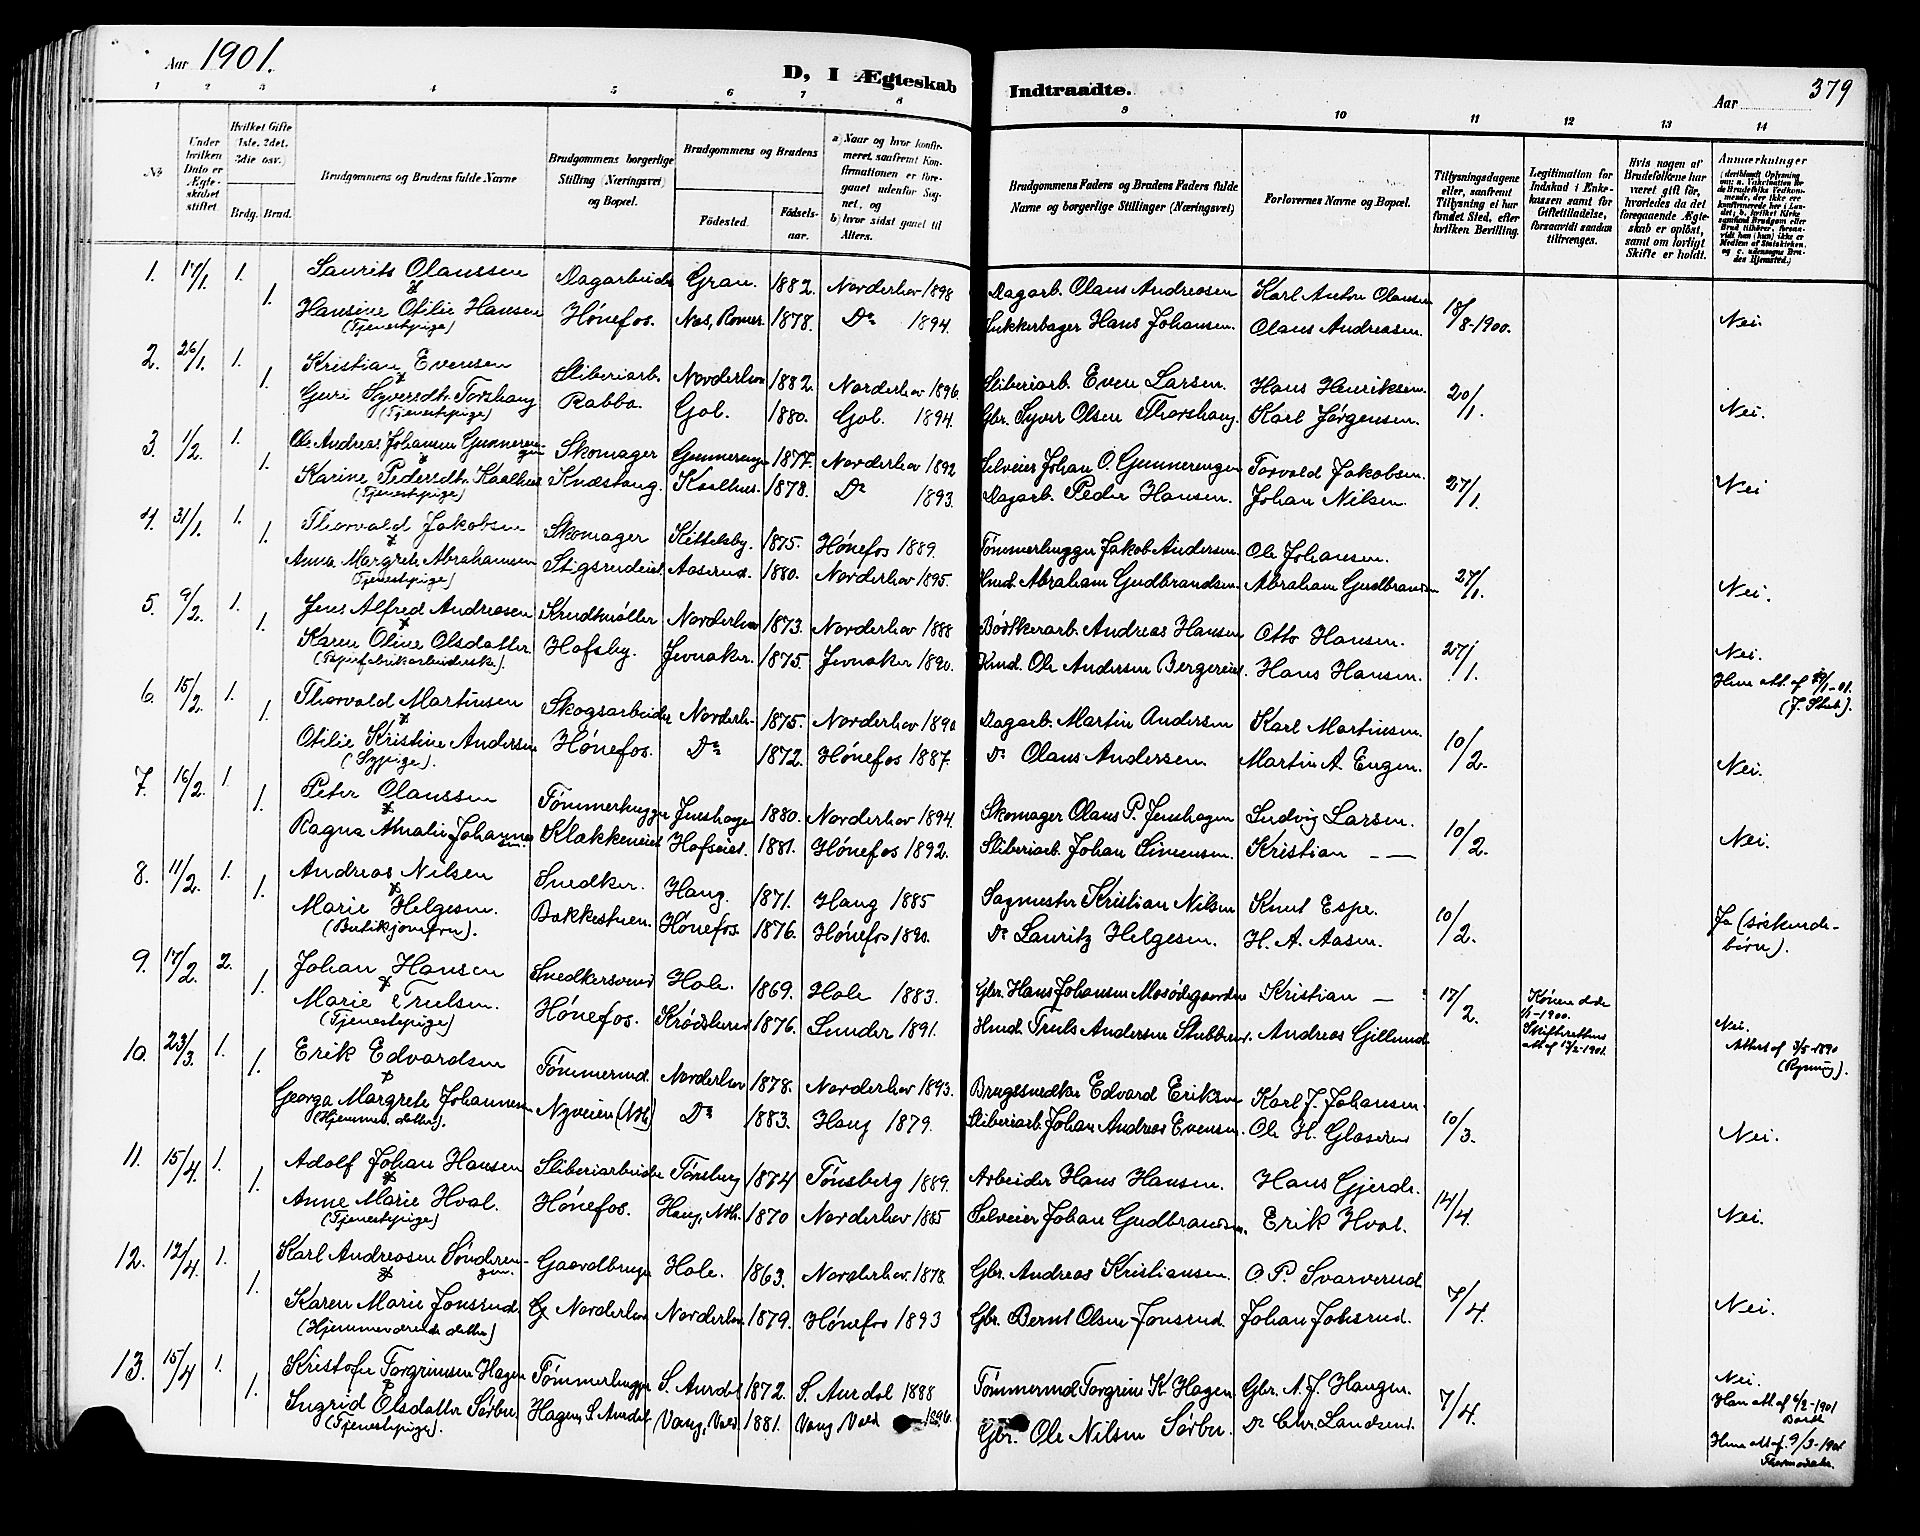 Aar 1901.
D, I Ægteskab Indtraadte.
Aar 379
1 2 3 4 5 6 7 8 9 10 11 12 13 14
№
Under hvilken Dato er Ægteskabet stiftet.
Hvilket Gifte 1ste. 2det. 3die osv.)
Brdg. Brud.
Brudgommens og Brudens fulde Navne
Brudgommens borgerlige Stilling (Næringsvei) og Bopæl.
Brudgommens og Brudens
Fødested. Fødselsaar.
a) Naar og hvor konfirmeret, saafremt Konfirmationen er foregaaet udenfor Sognet, og
b) hvor sidst gaaet til Alters.
Brudgommens Faders og Brudens Faders fulde Navne og borgerlige Stillinger (Næringsvei)
Forlovernes Navne og Bopæl.
Tillysningsdagene eller, saafremt Tillysning ei har fundet Sted, efter hvilken Bevilling.
Legitimation for Indskud i Enkekassen samt for Giftetilladelse, forsaavidt saadan tiltrænges.
Hvis nogen af Brudefolkene har været gift før, hvorledes da det foregaaende Ægteskab er opløst, samt om lovligt Skifte er holdt.
Anmærkninger
1. 17/1 1. Laurits Olaussen Dagarbeider Gran. 1882. Norderhov 1898 Dagarb. Olaus Andreasen Karl Anton Olausen 18/8-1900.
1. Hansine Otilie Hansen Hønefos. Nes, Romer. 1878. Do 1894. Sukkerbager Hans Johansen. Olaus Andreasen. Nei.
(Tjenestepige)
2. 26/1. 1. Kristian Evensen Sliberiarb. Norderhov 1882. Norderhov 1896. Sliberiarb. Even Larsen. Hans Henriksen. 20/1.
1. Guri Syversdtr Torshaug Rabba. Gol. 1880. Gol. 1894. Gbr. Syver Olsen Thorshaug. Karl Jørgensen. Nei.
(Tjenestepige)
3. 1/2. 1. Ole Andreas Johansen Gunnerengen Skomager Gunnerengen 1877. Norderhov 1892 Selveier Johan O. Gunnerengen Torvald Jakobsen. 27/1.
1. Karine Pedersdtr Kaalhus Knestang. Kaalhus. 1878. Do 1893. Dagarb. Peder Hansen. Johan Nilsen. Nei
(Tjenestepige)
4. 31/1. 1. Thorvald Jakobsen Skomager Kittelsby. 1875. Hønefos 1889. Tømmerhugger Jakob Andersen Ole Johansen. 27/1.
1. Anna Margrete Abrahamsen Stigsrudeiet Aaserud. 1880. Norderhov 1895. Hmd. Abraham Gudbrandsen. Abraham Gudbrandsen Nei.
(Tjenestepige)
5. 9/2. 1. Jens Alfred Andreasen Krudtmøller Norderhov 1873. Norderhov 1888 Bødkerarb. Andreas Hansen Otto Hansen. 27/1.
1. Karen Oline Olsdatter Hofsby. Jevnaker. 1875. Jevnaker 1890. Hmd. Ole Andersen Bergereiet. Hans Hansen. Nei.
Hun att. af /1-01.
6. 15/2. 1. Thorvald Martinsen Skogsarbeider Norderh. 1875. Norderhov 1890 Dagarb. Martin Andersen Karl Martinsen. 10/2.
1. Otilie Kristine Andersen Hønefos. Do 1872. Hønefos 1887. Do Olaus Andersen Martin A. Engen. Nei.
(Sypige).
7. 16/2. 1. Peter Olaussen Tømmerhugger Jenshagen 1880. Norderhov 1894. Skomager Olaus P. Jenshagen Ludvig Larsen. 10/2.
1. Ragna Amalie Johannessen Klækkeneiet Hofseiet. 1881. Hønefos 1892. Sliberiarb. Johan Simensen. Kristian — — Nei.
8. 11/2. 1. Andreas Nilsen Snedker. Haug. 1871. Haug 1885 Sagmester Kristian Nilsen Knut Espe. 10/2.
1. Marie Helgesen. Bakkestuen. Hønefos. 1876. Hønefos 1890. Do Lauritz Helgesen. H. A. Aasen. Ja (søskendebørn).
(Butikjomfru).
9. 17/2. 2. Johan Hansen Snedkersvend Hole. 1869. Hole 1883. Gbr. Hans Johansen Mosødegaarden Kristian — 17/2. Konen døde 1900.
1. Marie Trulsen. Hønefos. Krødsherred 1876. Lunder 1891. Hmd. Truls Andersen Stubberud. Andreas Gillund Skifterettens att af 12/2-1901. Nei.
(Tjenestepige) Attest af 3/5-1890
10. 23/3. 1. Erik Edvardsen Tømmermd. Norderhov 1878. Norderhov 1893. Brugssnedker Edvard Eriksen Karl J. Johansen. 10/3.
1. Georga Margrete Johannessen Nyveien (Nh) Do 1883. Haug 1879. Sliberiarb. Johan Andreas Evensen. Ole H. Glaserud Nei.
(Hjemmev. datter).
11. 15/4. 1. Adolf Johan Hansen Sliberiarbeider Tønsberg 1874 Tønsberg 1889. Arbeider Hans Hansen. Hans Gjerde. 14/4.
1. Anne Marie Hval. Hønefos. Haug, Nh. 1870 Norderhov 1885 Selveier Johan Gudbrandsen. Erik Hval. Nei.
(Tjenestepige)
12. 12/4. 1. Karl Andreasen Sønderengen. Gaardbruger Hole. 1863. Norderhov. 1878. Gbr. Andreas Kristiansen. O. P. Svarverud. 7/4.
1. Karen Marie Jonsrud Norderhov Norderhov. 1879. Hønefos 1893 Gbr. Bernt Olsen Jonsrud. Johan Jonsrud. Nei.
(Hjemmeværende datter)
13. 15/4 1. Kristofer Torgrimsen Hagen Tømmerhugger S. Aurdal 1872. S. Aurdal 1888 Tømmermd Torgrim K. Hagen Gbr. A. J. Haugen. 7/4. Nei.
1. Ingrid Olsdatter Sørbu. Hagen, S. Aurdal Vang, Vald. 1881. Vang Vald 1896. Gbr. Ole Nilsen Sørbu. Do Chr. Landsend. Han att. af 6/2-1901
(Tjenestepige). Hun att af. 9/3-1901